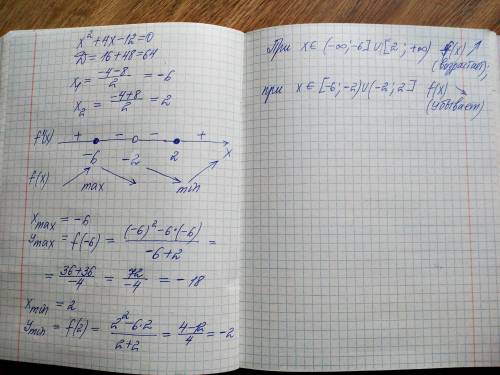 x² + 4x - 12 = 0
D = 16 + 48 = 64
x₁ = (-4-8)/2 = -6
x₂ = (-4+8)/2 = 2
f'(x) + - - +
-6 -2 2 x
f(x) ↗ max ↘ ↘ min ↗
x max = -6
y max = f(-6) = ((-6)² - 6·(-6))/(-6+2) =
= (36+36)/-4 = 72/-4 = -18
x min = 2
y min = f(2) = (2² - 6·2)/(2+2) = (4-12)/4 = -2
При x ∈ (-∞; -6] ∪ [2; +∞) f(x) ↗
(возрастает),
при x ∈ [-6; -2) ∪ (-2; 2] f(x) ↘
(убывает)